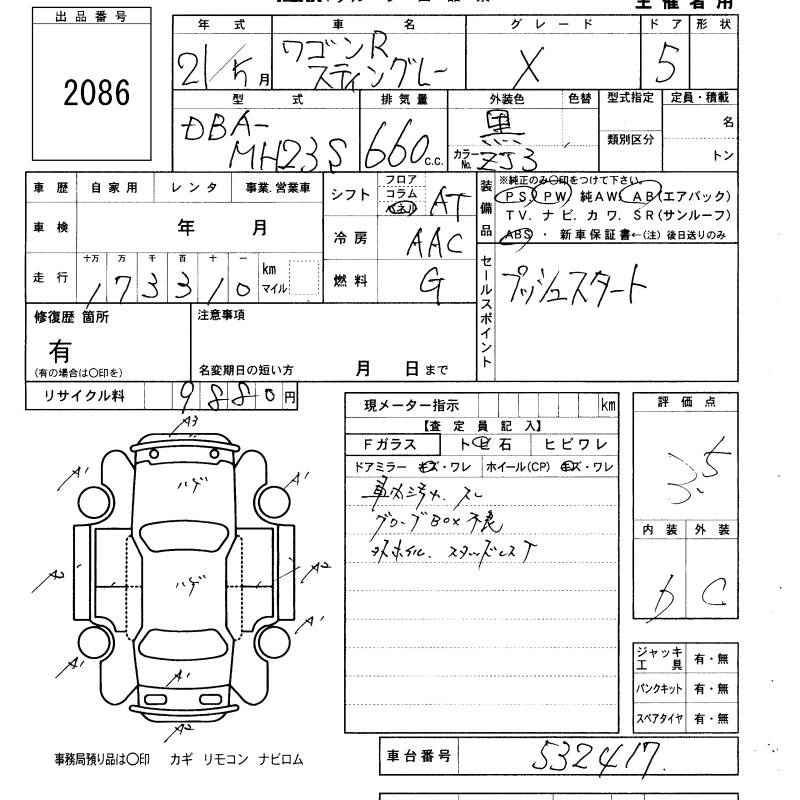 出品番号
2086
年式 車名 グレード ドア 形状
21/5月 ワゴンR スティングレー X 5
型式 排気量 外装色 色替 型式指定 定員・積載
DBA-MH23S 660c.c. 黒 カラーNo. ZJ3 類別区分 名 トン
車歴 自家用 レンタ 事業.営業車
車検 年 月
走行 十万 万 千 百 十 一 km マイル
173310
シフト フロア コラム パネル AT
冷房 AAC
燃料 G
装備品
※純正のみ〇印をつけて下さい。
PS PW 純AW. AB(エアバック)
TV. ナビ. カワ. SR(サンルーフ)
ABS ・ 新車保証書←(注) 後日送りのみ
セールスポイント
プッシュスタート
修復歴 箇所
有
(有の場合は〇印を)
注意事項
名変期日の短い方 月 日まで
リサイクル料 9880円
現メーター指示 km
【査定員記入】
Fガラス トビ石 ヒビワレ
ドアミラー キズ・ワレ ホイール(CP) キズ・ワレ
車内汚れ. スレ
グローブBOX不良
スタッドレスT
評価点
3.5
内装 外装
D C
A3
A1 A1
ハゲ
A2 A2
ハゲ
A1 A1
A1
A2
ジャッキ工具 有・無
パンクキット 有・無
スペアタイヤ 有・無
事務局預り品は〇印 カギ リモコン ナビロム
車台番号 532417